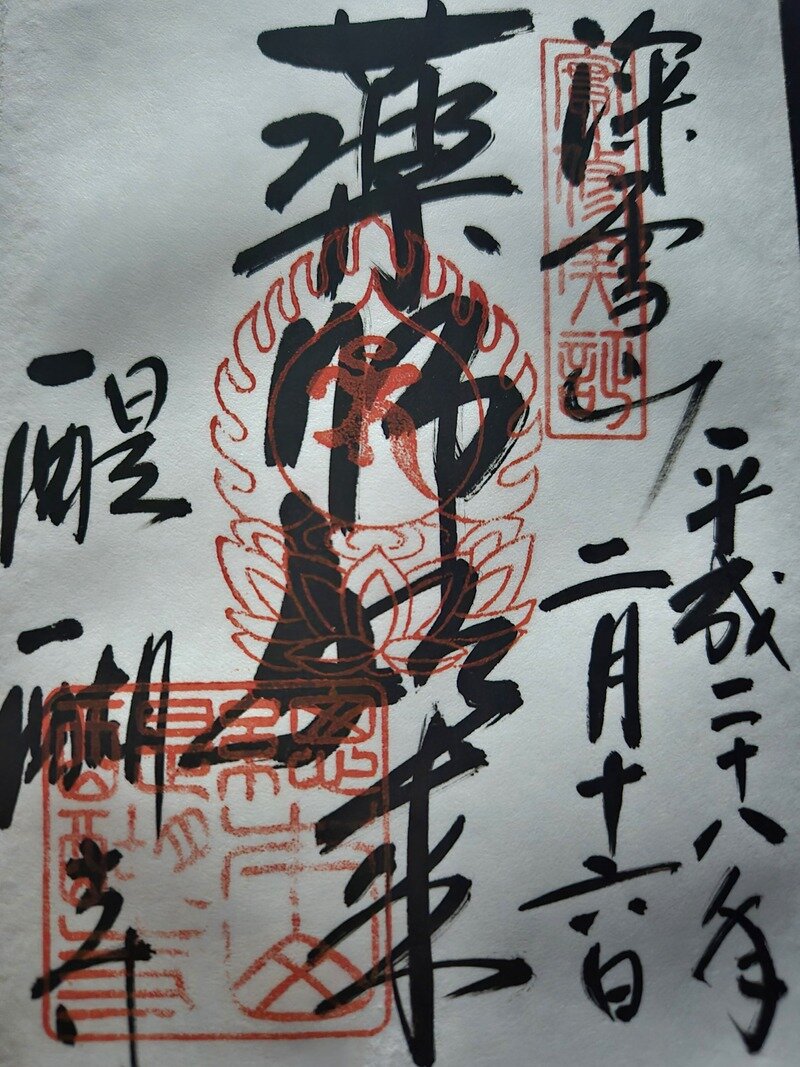 平成二十八年
二月十六日
深雪山
實修実証
薬師如来
醍醐寺